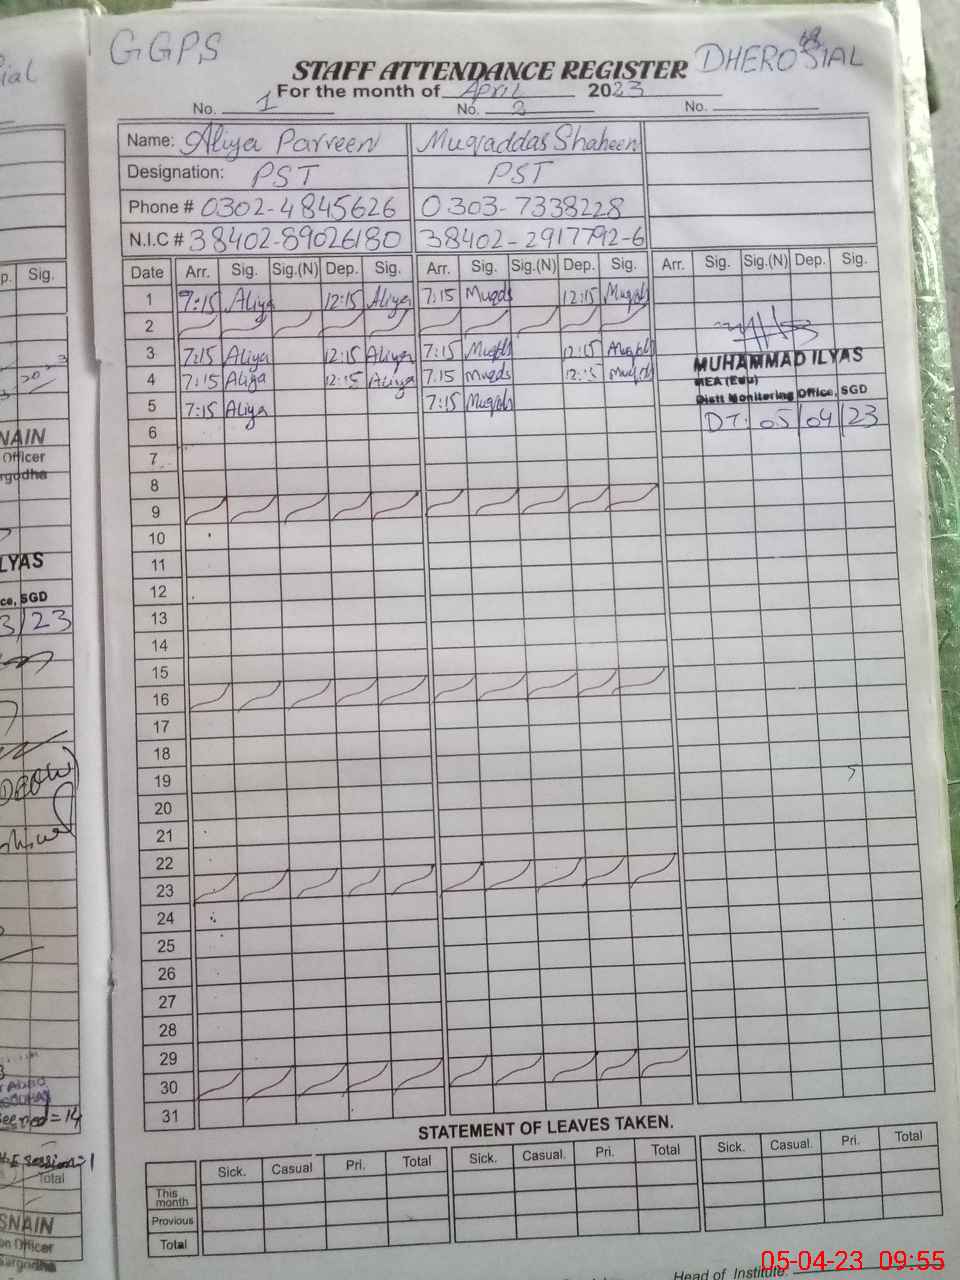 GGPS
DHERO SIAL
STAFF ATTENDANCE REGISTER
For the month of April 2023
No. 1 No. 2 No.
Name: Aliya Parveen Muqaddas Shaheen
Designation: PST PST
Phone # 0302-4845626 0303-7338228
N.I.C # 38402-89026180 38402-2917792-6
Date Arr. Sig. Sig.(N) Dep. Sig. Arr. Sig. Sig.(N) Dep. Sig. Arr. Sig. Sig.(N) Dep. Sig.
1 7:15 Aliya 12:15 Aliya 7:15 Muqds 12:15 Muqds
2
3 7:15 Aliya 12:15 Aliya 7:15 Muqds 12:15 Muqds
4 7:15 Aliya 12:15 Aliya 7:15 Muqds 12:15 Muqds
5 7:15 Aliya 7:15 Muqds
MUHAMMAD ILYAS
MEA (Edu)
Distt Monitering Office, SGD
DT: 05/04/23
6
7
8
9
10
11
12
13
14
15
16
17
18
19
20
21
22
23
24
25
26
27
28
29
30
31
STATEMENT OF LEAVES TAKEN.
Sick. Casual Pri. Total Sick. Casual. Pri. Total Sick. Casual. Pri. Total
This month
Previous
Total
Head of Institute.
05-04-23 09:55
Sig.
SNAIN
Officer
rgodha
LYAS
ce, SGD
3/23
=14
session=1
Total
SNAIN
on Officer
Sargodha